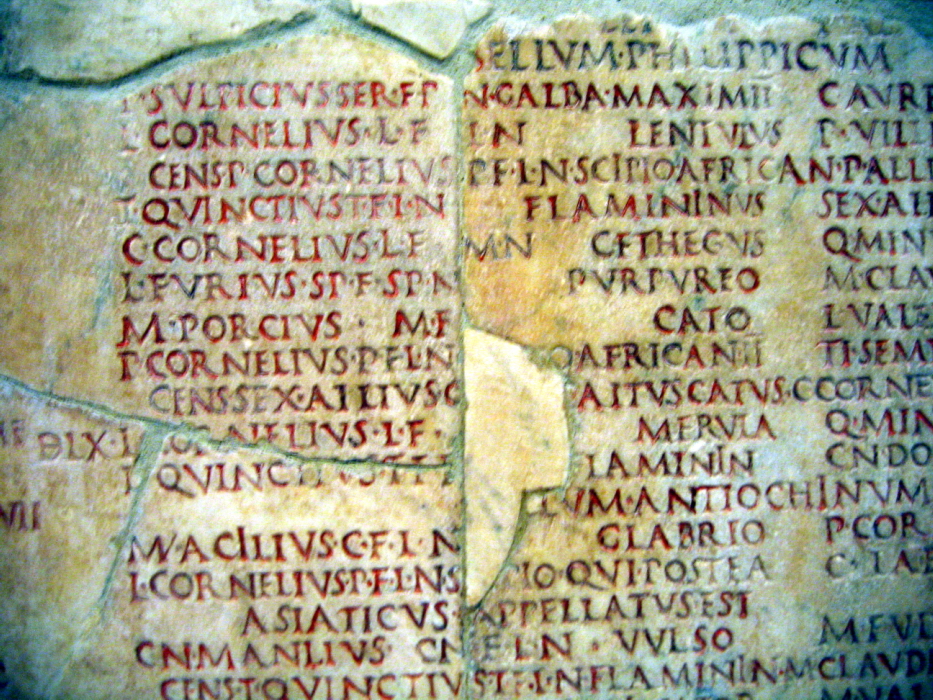 SELLVM·PHILIPPICVM
P·SVLPICIVS SER·F·P N·GALBA·MAXIMII C AVRE
L CORNELIVS·L·F L N LENTVLVS P·VILL
CENS·P·CORNELIVS P·F·L·N·SCIPIO AFRICAN·P·AELI
T·QVINCTIVS T·F·L·N FLAMININVS SEX·AEL
C CORNELIVS·L·F M·N CETHEGVS Q MINV
L·FVRIVS·SP·F·SP·N PVRPVREO M·CLAV
M·PORCIVS · M·F CATO L VALE
P CORNELIVS·P·F·L·N AFRICANII TI·SEM
CENS SEX·AELIVS Q PAITVS CATVS·C CORNE
DLX·L CORNELIVS·L·F· MERVLA Q·MIN
L QVINCTIVS FLAMININ CN DO
VII VM·ANTIOCHINVM
M·ACILIVS·C·F·L·N GLABRIO P·COR
L·CORNELIVS·P·F·L·N·S PIO·QVI·POSTEA C·LAE
ASIATICVS· APPELLATVS EST
CN·MANLIVS· CN·F·L·N· VVLSO M FVL
CENS·T·QVINCTIVS T·F·L·N FLAMININ·M CLAVDI